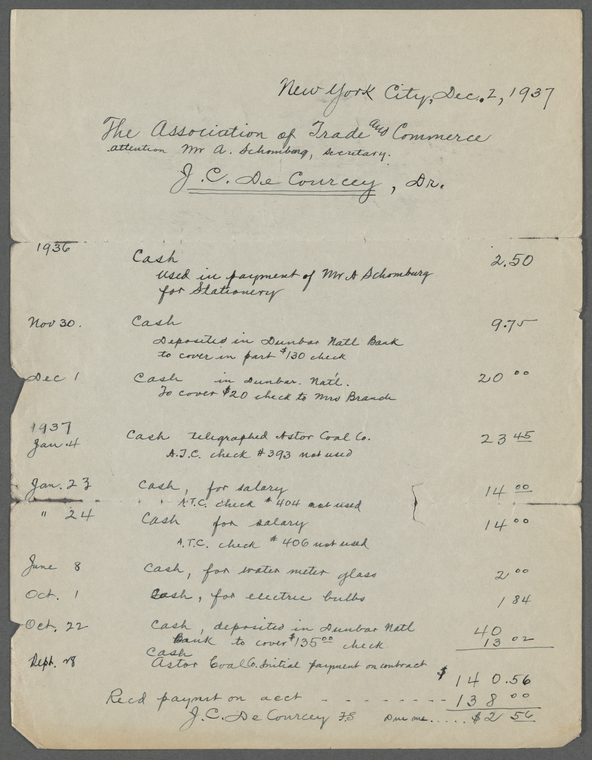 New York City, Dec. 2, 1937
The Association of Trade and Commerce
attention Mr A. Schomburg, Secretary.
J. C. De Courcey, Dr.
1936
Cash 2.50
used in payment of Mr A Schomburg
for Stationery
Nov 30. Cash 9.75
Deposited in Dunbar Natl Bank
to cover in part $130 check
Dec 1 Cash in Dunbar. Nat'l. 20 00
To cover $20 check to Mrs Branch
1937
Jan 4 Cash telegraphed Astor Coal Co. 23 45
A.T.C. check #393 not used
Jan. 23 Cash, for salary 14 00
A.T.C. check #404 not used
" 24 Cash for salary 14 00
A.T.C. check #406 not used
June 8 Cash, for water meter glass 2 00
Oct. 1 Cash, for electric bulbs 1 84
Oct. 22 Cash, deposited in Dunbar Natl 40
Bank to cover $135 00 check 13 02
Cash
Sept. 28 Astor Coal Co. Initial payment on contract
$ 140.56
Recd paymnt on acct - - - - - - - - 138 00
J. C. De Courcey Due me. . . . . $2 56